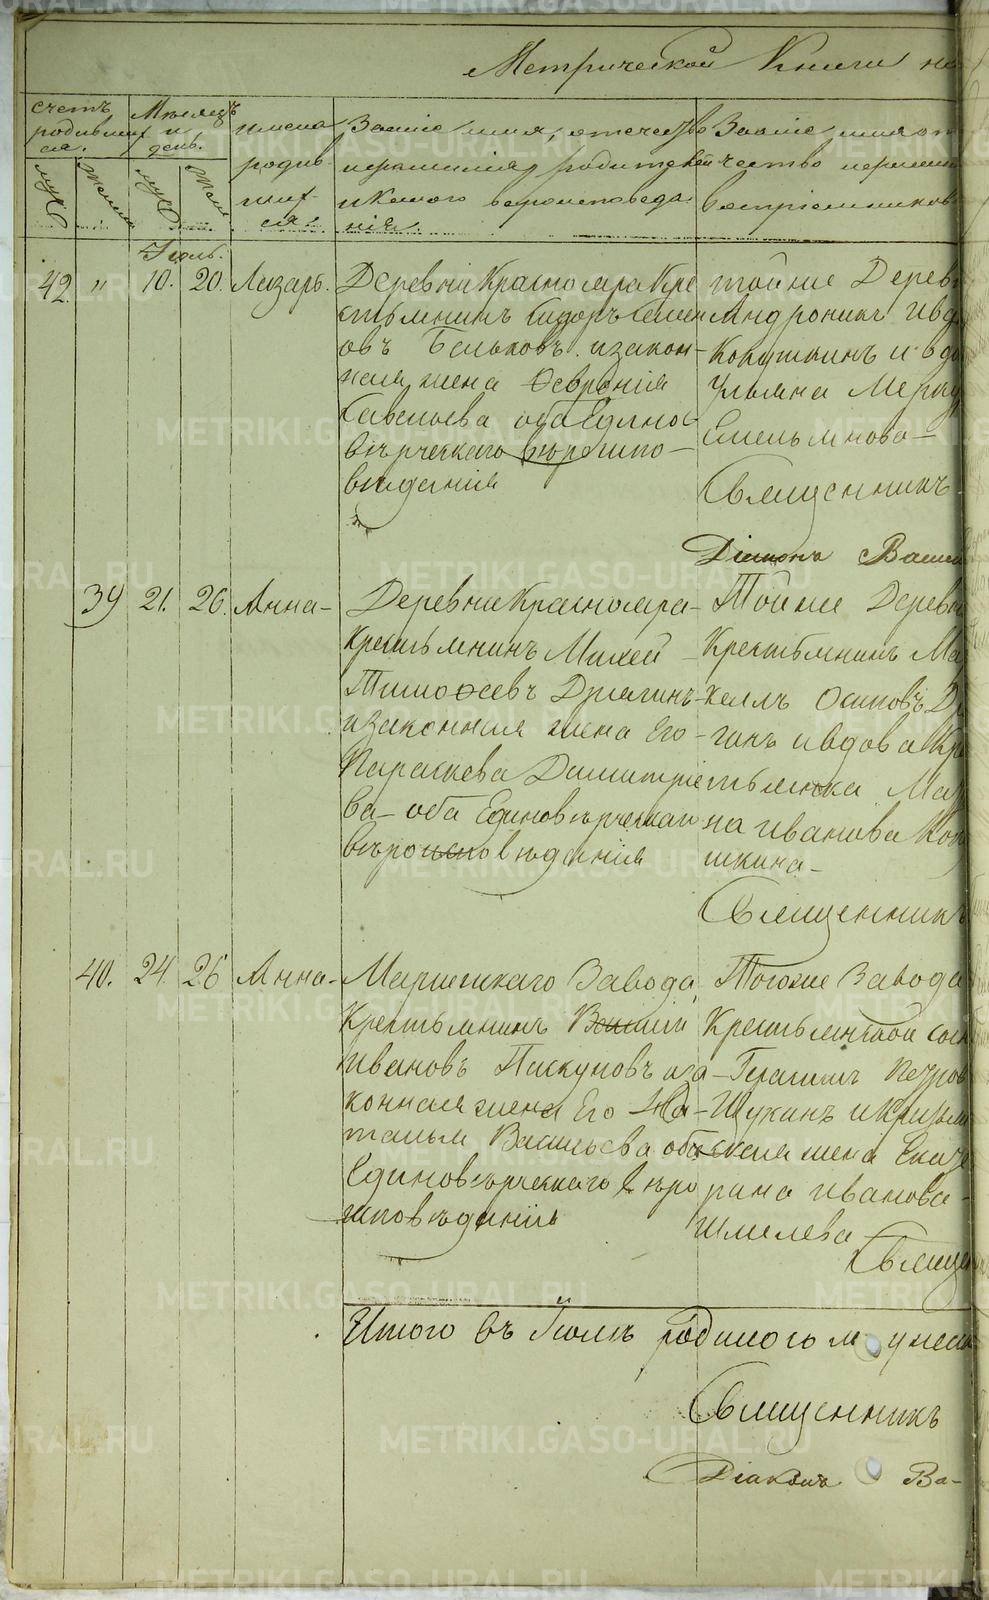 Метрической Книги на
счетъ родивших ся.
муж
женск
Мѣсяцъ и день.
имена родив шихся.
Званіе, имя, отечество
и фамилія родителей
и какого вероисповеда
нія.
Званіе, имя от
чество и фамилі
воспріемников
Іюль.
42. " 10. 20. Лазарь.
Деревни Краснояра Кре
стьянинъ Сидоръ Семен
овъ Бельковъ и закон-
ная жена Феврония
Савельева оба Едино
вѣрческаго вероиспо-
веданія
тойже Дерев
Андроникъ Ива
Кокушкинъ и вдо
Ульяна Мерку
Емельянова-
Священникъ
Діаконъ Васи
39 21. 26. Анна-
Деревни Краснояра-
Крестьянинъ Михей
Тимофеевъ Дрягинъ-
и законная жена Его-
Параскева Димитріе
ва- оба Единовѣрческаго
вѣроисповѣданія
Тойже Деревн
Крестьянинъ Ма
Осиповъ Др
гинъ и вдова Кре
стьянка Мар
на Иванова Кок
шкина-
Священникъ
40. 24. 26 Анна-
Маріинскаго Завода
Крестьянинъ Василій
Ивановъ Паскуновъ и за-
конная жена Его На-
талья Васильева оба
Единовѣрческаго вѣро
исповѣданія
Тогоже Завода
Крестьянской сын
Герасимъ Петров
Щукинъ и Крестьян
ская жена Екате
рина Иванова-
Шмелева
Священ
Итого въ Іюлѣ родилось м
Священникъ
Діаконъ Ва-
METRIKI.GASO-URAL.RU